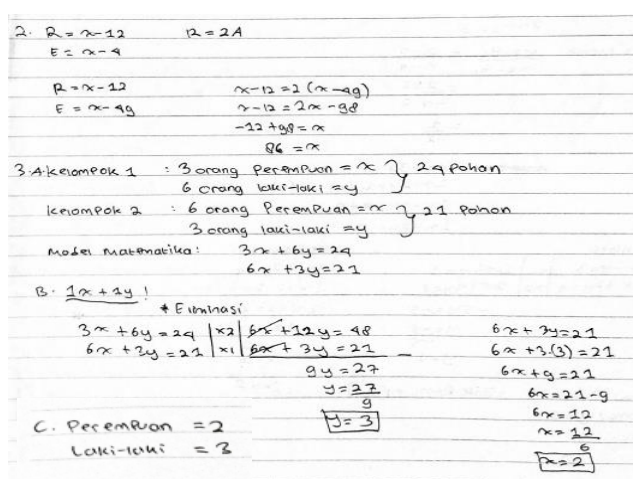 2. R = x-12 R = 2A
E = x-4
R = x-12 x-12 = 2(x-49)
E = x-49 x-12 = 2x-98
-12+98 = x
86 = x
3.A. Kelompok 1 : 3 orang Perempuan = x } 24 Pohon
6 orang laki-laki = y
Kelompok 2 : 6 orang Perempuan = x } 21 Pohon
3 orang laki-laki = y
Model Matematika: 3x + 6y = 24
6x + 3y = 21
B. 1x + 1y !
* Eliminasi
3x + 6y = 24 | x2 | 6x + 12y = 48
6x + 3y = 21 | x1 | 6x + 3y = 21 -
9y = 27
y = 27/9
y = 3
6x + 3y = 21
6x + 3.(3) = 21
6x + 9 = 21
6x = 21-9
6x = 12
x = 12/6
x = 2
C. Perempuan = 2
Laki-laki = 3